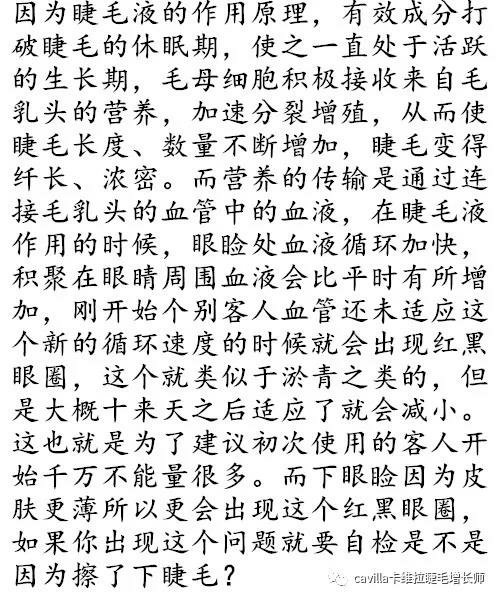 因为睫毛液的作用原理，有效成分打
破睫毛的休眠期，使之一直处于活跃
的生长期，毛母细胞积极接收来自毛
乳头的营养，加速分裂增殖，从而使
睫毛长度、数量不断增加，睫毛变得
纤长、浓密。而营养的传输是通过连
接毛乳头的血管中的血液，在睫毛液
作用的时候，眼睑处血液循环加快，
积聚在眼睛周围血液会比平时有所增
加，刚开始个别客人血管还未适应这
个新的循环速度的时候就会出现红黑
眼圈，这个就类似于淤青之类的，但
是大概十来天之后适应了就会减小。
这也就是为了建议初次使用的客人开
始千万不能量很多。而下眼睑因为皮
肤更薄所以更会出现这个红黑眼圈，
如果你出现这个问题就要自检是不是
因为擦了下睫毛？
cavilla卡维拉睫毛增长师